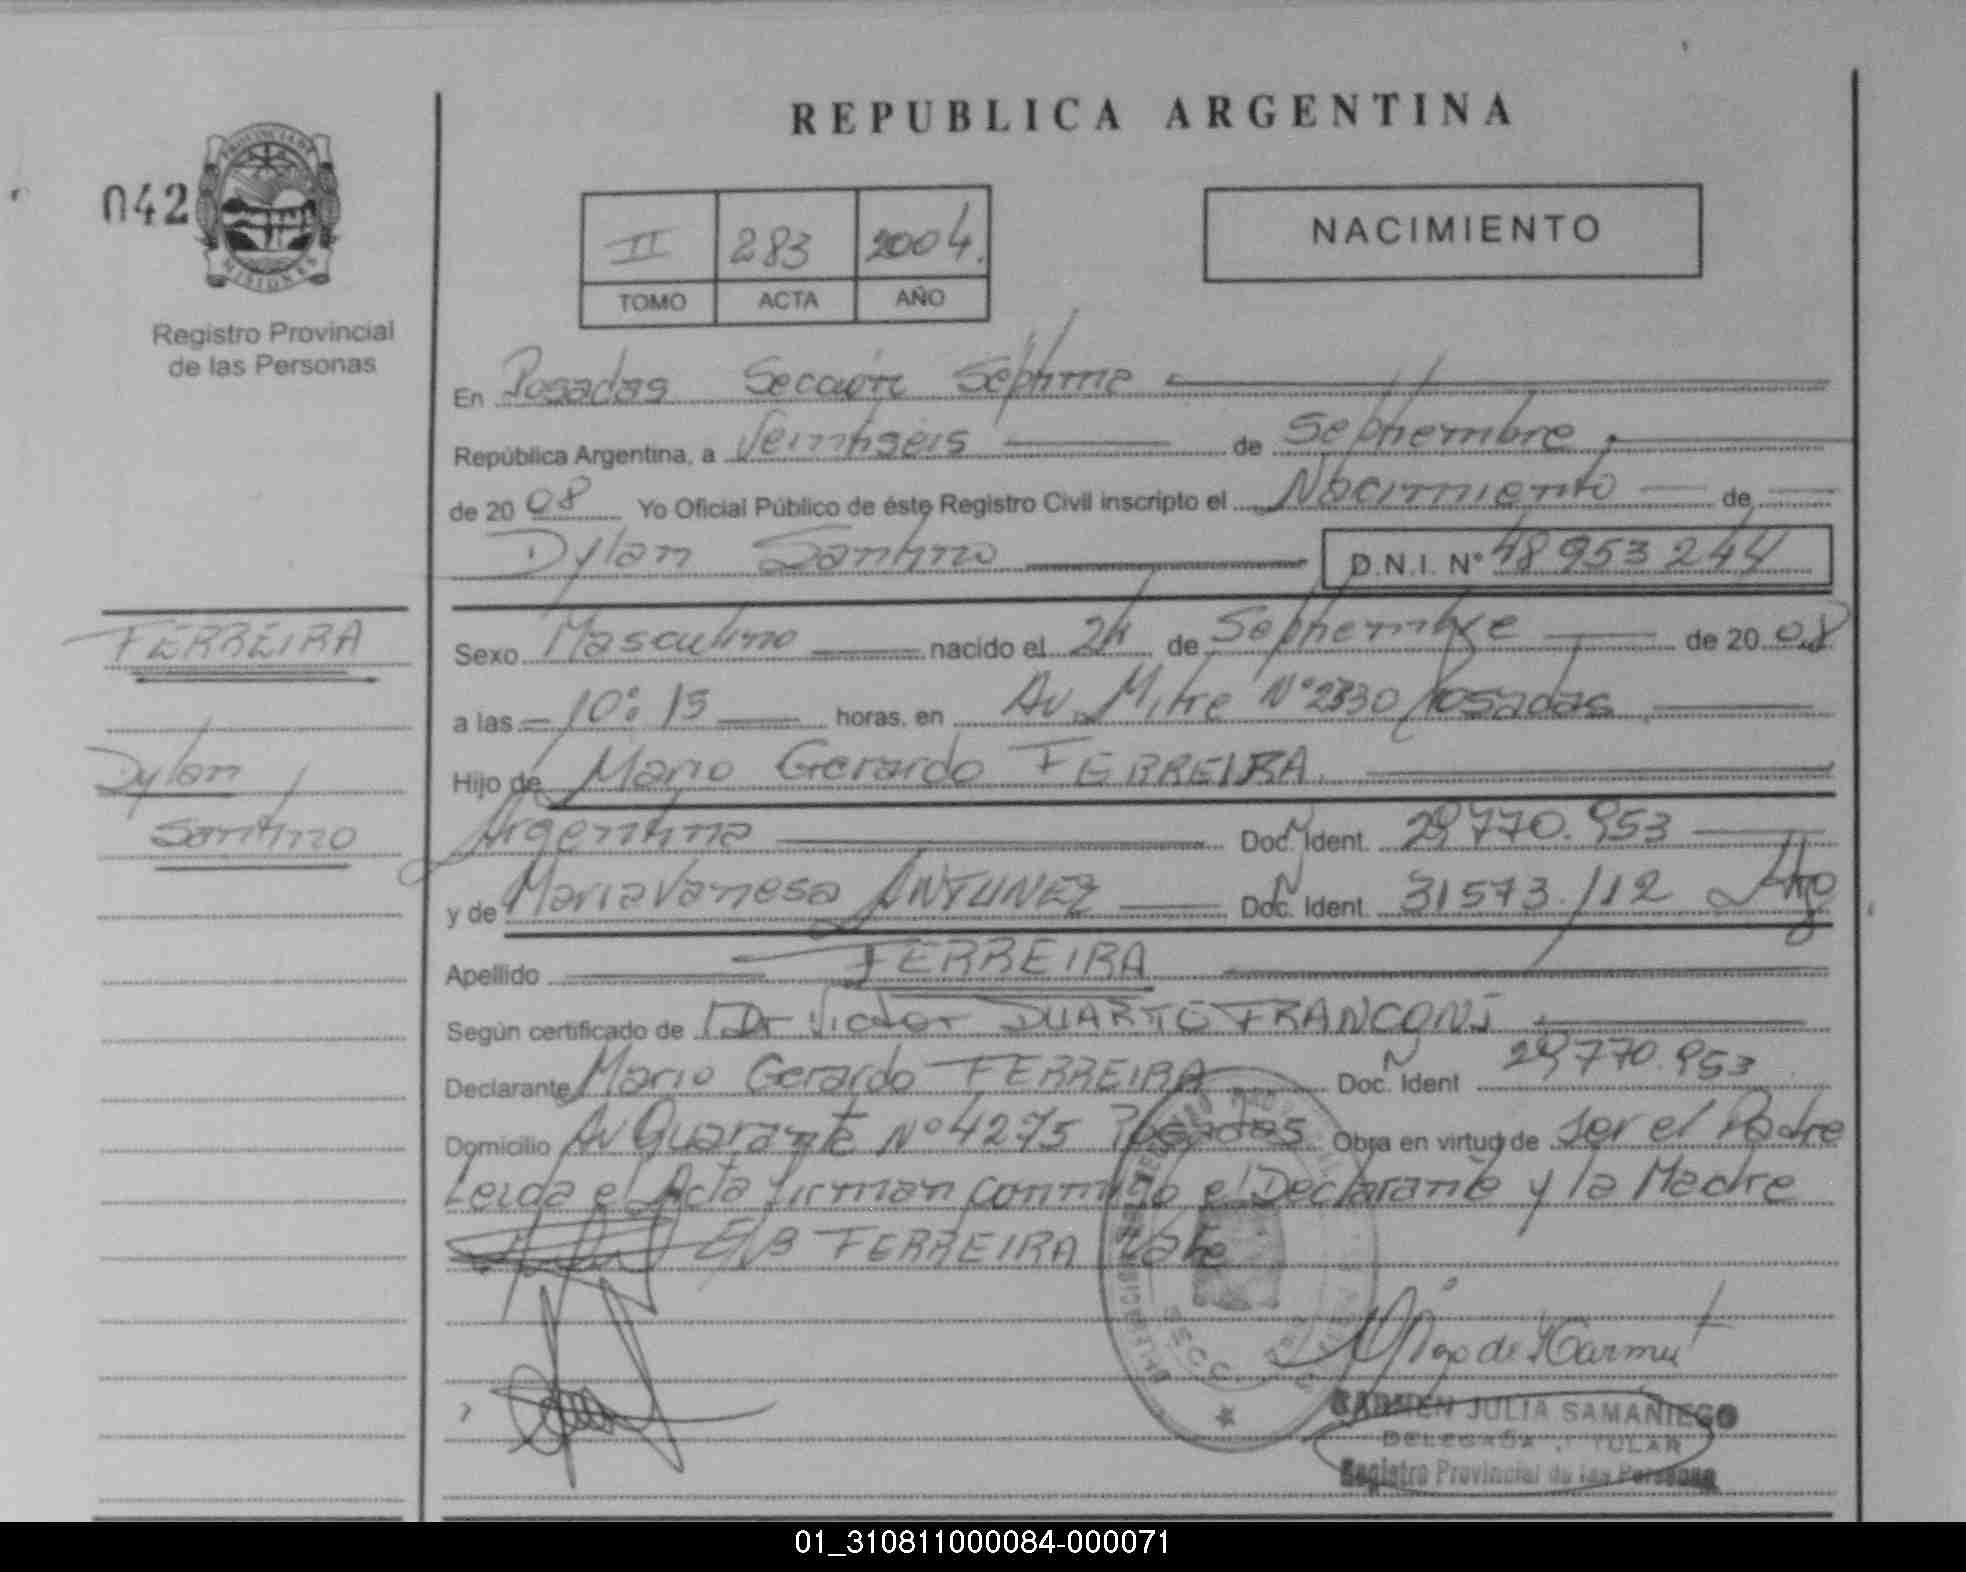 REPUBLICA ARGENTINA
042
PROVINCIA DE
MISIONES
Registro Provincial
de las Personas
II 283 2004.
TOMO ACTA AÑO
NACIMIENTO
En Posadas Sección Séptima
República Argentina, a Veintiseis de Septiembre
de 20 08 Yo Oficial Público de éste Registro Civil inscripto el Nacimiento de
Dylan Santino D.N.I. Nº 48953244
FERREIRA
Dylan
Santino
Sexo Masculino nacido el 24 de Septiembre de 20 08
a las 10:15 horas, en Av. Mitre Nº 2330 Posadas
Hijo de Mario Gerardo FERREIRA
Argentina Doc. Ident. 29770.953
y de Maria Vanesa ANTUNEZ Doc. Ident. 31573.112
Apellido FERREIRA
Según certificado de Dr Victor DUARTE FRANCONI
Declarante Mario Gerardo FERREIRA Doc. Ident 29770.953
Domicilio Av Quaranta Nº 4275 Posadas Obra en virtud de ser el Padre
Leida el Acta firman conmigo el Declarante y la Madre
FERREIRA Vale
SECC
CARMEN JULIA SAMANIEGO
DELEGADA TITULAR
Registro Provincial de las Personas
01_310811000084-000071